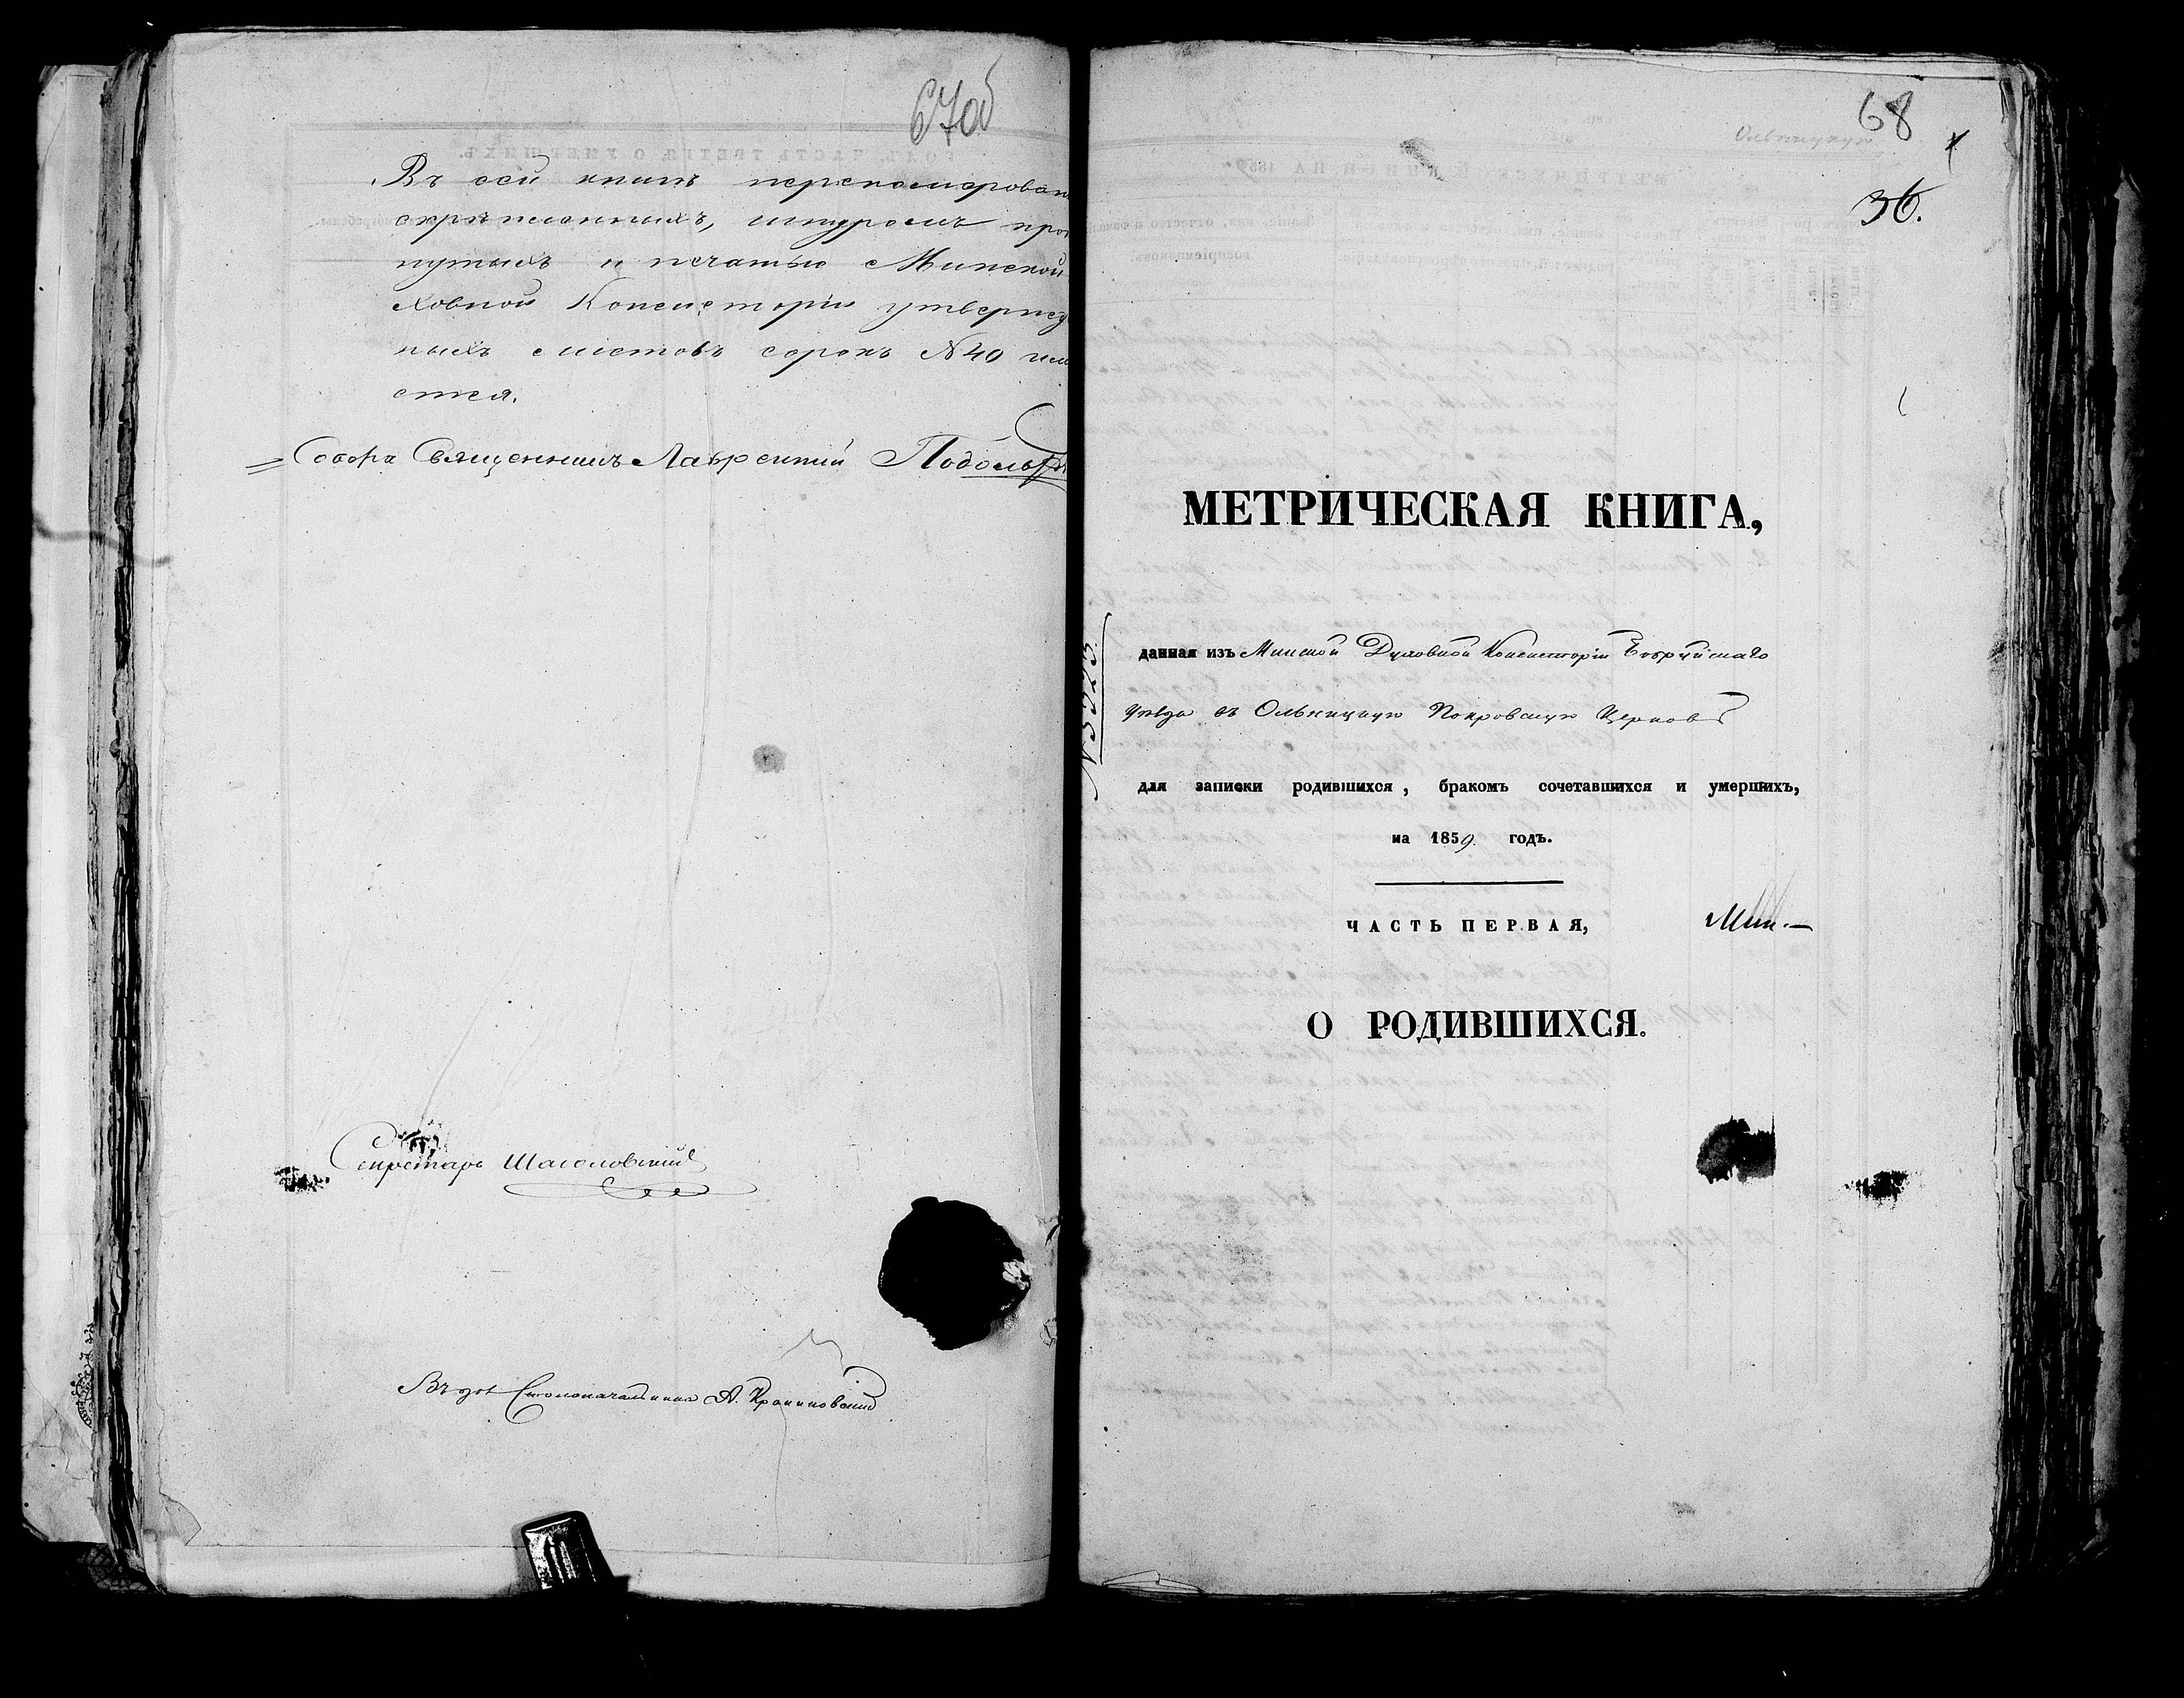 67об
Въ сей книгѣ перенумерован
скрѣпленныхъ, шнуромъ про
нутыхъ и печатью Минской
ховной Консисторіи утвержд
ныхъ листовъ сорокъ №40 чис
ется.
Собора Священникъ Лаврентій
Секретарь
Столоначальника А.
68
Ольницкую
36.
МЕТРИЧЕСКАЯ КНИГА,
данная изъ Минской Духовной Консисторіи Бобруйскаго
Уѣзда въ Ольницкую Покровскую Церковь
для записки родившихся, бракомъ сочетавшихся и умершихъ,
на 1859 годъ.
ЧАСТЬ ПЕРВАЯ,
Мин.—
О РОДИВШИХСЯ.